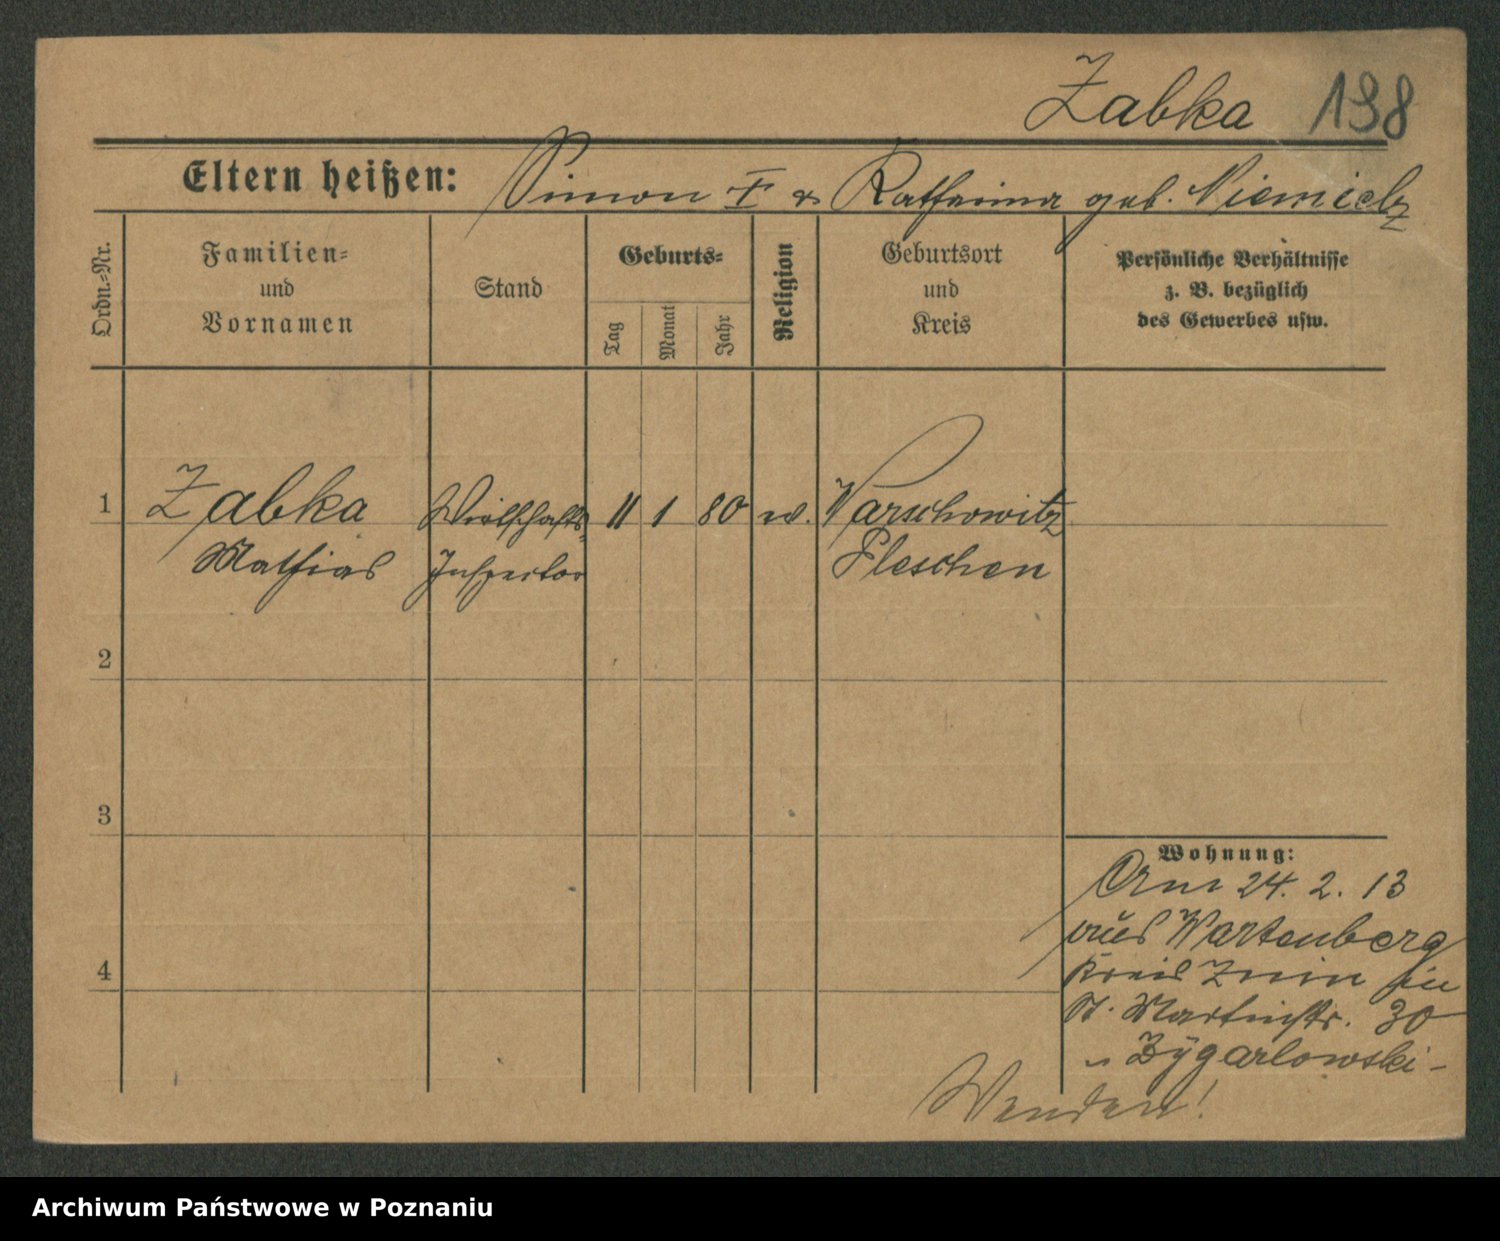 Zabka 198
Eltern heißen: Simon † & Katharina geb. Niemietz
Ordn.-Nr.
Familien-
und
Vornamen
Stand
Geburts-
Tag
Monat
Jahr
Religion
Geburtsort
und
Kreis
Persönliche Verhältnisse
z. B. bezüglich
des Gewerbes usw.
1 Zabka Wirtschafts- 11 1 80 Warschowitz
Mathias Inspektor Pleschen
2
3
4
Wohnung:
Am 24. 2. 13
aus Wartenberg
Kreis Znin in
St. Martinstr. 30
Zygarlowski -
Wenden!
Archiwum Państwowe w Poznaniu